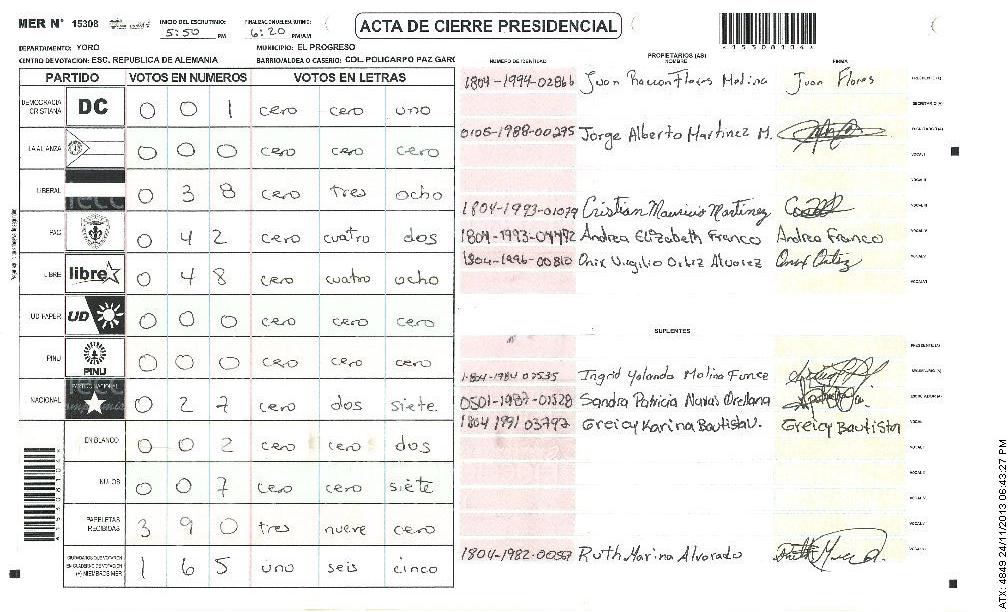 MER N° 15308
INICIO DEL ESCRUTINIO: 5:50 PM
FINALIZACION DEL ESCRUTINIO: 6:20 PM/AM
ACTA DE CIERRE PRESIDENCIAL
15308104
DEPARTAMENTO: YORO
MUNICIPIO: EL PROGRESO
CENTRO DE VOTACION: ESC. REPUBLICA DE ALEMANIA
BARRIO/ALDEA O CASERIO: COL. POLICARPO PAZ GARC
PARTIDO VOTOS EN NUMEROS VOTOS EN LETRAS
DEMOCRACIA CRISTIANA DC 0 0 1 cero cero uno
LA ALIANZA 0 0 0 cero cero cero
LIBERAL 0 3 8 cero tres ocho
PAC 0 4 2 cero cuatro dos
LIBRE libre 0 4 8 cero cuatro ocho
UD FAPER UD 0 0 0 cero cero cero
PINU PINU 0 0 0 cero cero cero
NACIONAL PARTIDO NACIONAL 0 2 7 cero dos siete.
EN BLANCO 0 0 2 cero cero dos
NULOS 0 0 7 cero cero siete
PAPELETAS RECIBIDAS 3 9 0 tres nueve cero
CIUDADANOS QUE VOTARON EN CUADERNO DE VOTACION (+) MIEMBROS MER 1 6 5 uno seis cinco
PROPIETARIOS (AS)
NUMERO DE IDENTIDAD NOMBRE FIRMA
1804-1994-02866 Juan Ramon Flores Molina Juan Flores PRESIDENTE(A)
SECRETARIO(A)
0105-1988-00295 Jorge Alberto Martinez M. ESCRUTADOR(A)
VOCAL I
VOCAL II
1804-1993-01079 Cristian Mauricio Martinez VOCAL III
1804-1993-04492 Andrea Elizabeth Franco Andrea Franco VOCAL IV
1804-1996-00810 Onix Virgilio Ortiz Alvarez Onix Ortiz VOCAL V
VOCAL VI
SUPLENTES
PRESIDENTE(A)
1804-1984 02535 Ingrid Yolanda Molina Funez SECRETARIO(A)
0501-1987-01528 Sandra Patricia Orellana ESCRUTADOR(A)
1804 1991 03797 Greicy Karina Bautista U. Greicy Bautista VOCAL I
VOCAL II
VOCAL III
VOCAL IV
VOCAL V
1804-1982-00567 Ruth Marina Alvarado VOCAL VI
ATX: 4849 24/11/2013 06:43:27 PM